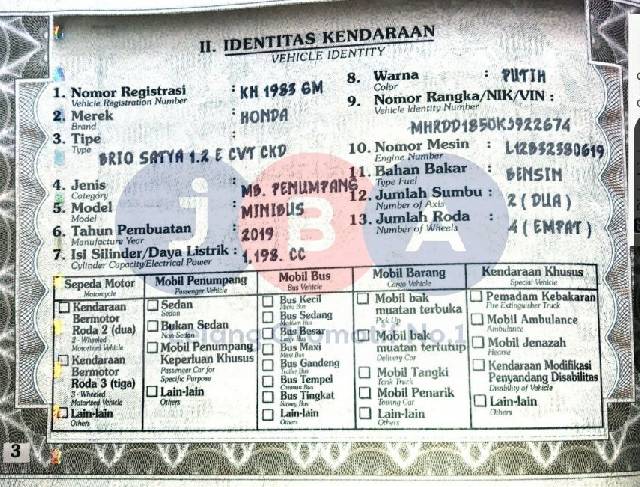 II. IDENTITAS KENDARAAN
VEHICLE IDENTITY
1. Nomor Registrasi : KH 1983 GM
Vehicle Registration Number
2. Merek : HONDA
Brand
3. Tipe :
Type
BRIO SATYA 1.2 E CVT CKD
4. Jenis : MB. PENUMPANG
Category
5. Model : MINIBUS
Model
6. Tahun Pembuatan : 2019
Manufacture Year
7. Isi Silinder/Daya Listrik : 1.198. CC
Cylinder Capacity/Electrical Power
8. Warna : PUTIH
Color
9. Nomor Rangka/NIK/VIN :
Vehicle Identity Number
MHRDD1850KJ922674
10. Nomor Mesin : L12B32380619
Engine Number
11. Bahan Bakar : BENSIN
Type Fuel
12. Jumlah Sumbu : 2 (DUA)
Number of Axis
13. Jumlah Roda : 4 (EMPAT)
Number of Wheels
jBA
Lelang Otomotif No.1
Sepeda Motor
Motorcycle
Kendaraan
Bermotor
Roda 2 (dua)
2 - Wheeled
Motorized Vehicle
Kendaraan
Bermotor
Roda 3 (tiga)
3 - Wheeled
Motorized Vehicle
Lain-lain
Others
Mobil Penumpang
Passenger Vehicle
Sedan
Sedan
Bukan Sedan
Non Sedan
Mobil Penumpang
Keperluan Khusus
Passenger Car for
Specific Purpose
Lain-lain
Others
Mobil Bus
Bus Vehicle
Bus Kecil
Bus Sedang
Medium Bus
Bus Besar
Bus Maxi
Maxi Bus
Bus Gandeng
Bus Tempel
Bus Tingkat
Lain-lain
Others
Mobil Barang
Cargo Vehicle
Mobil bak
muatan terbuka
Pick Up
Mobil bak
muatan tertutup
Delivery Car
Mobil Tangki
Tank Truck
Mobil Penarik
Towing Car
Lain-lain
Others
Kendaraan Khusus
Special Vehicle
Pemadam Kebakaran
Fire Extinguisher Truck
Mobil Ambulance
Ambulance
Mobil Jenazah
Hearse
Kendaraan Modifikasi
Penyandang Disabilitas
Disability of Vehicle
Lain-lain
Others
3